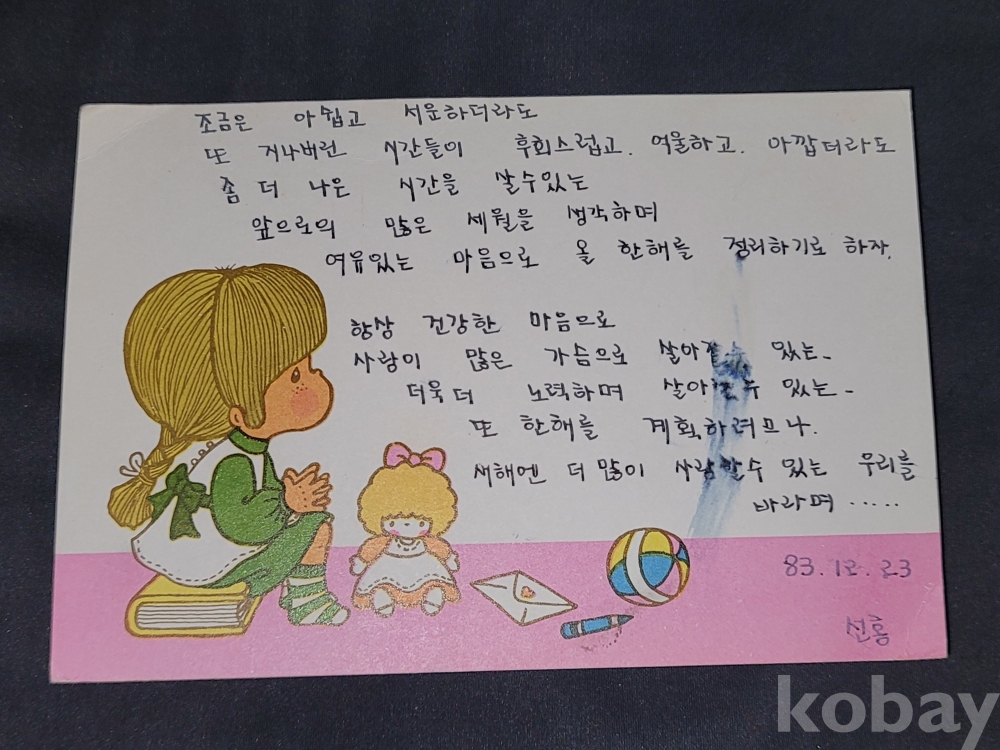 조금은 아쉽고 서운하더라도
또 지나버린 시간들이 후회스럽고. 억울하고. 아깝더라도
좀 더 나은 시간을 살수있는
앞으로의 많은 세월을 생각하며
여유있는 마음으로 올 한해를 정리하기로 하자.
항상 건강한 마음으로
사랑이 많은 가슴으로 살아갈 수 있는-
더욱 더 노력하며 살아갈 수 있는-
또 한해를 계획하려므나.
새해엔 더 많이 사랑할수 있는 우리를
바라며 .....
83. 12. 23
선홍
kobay